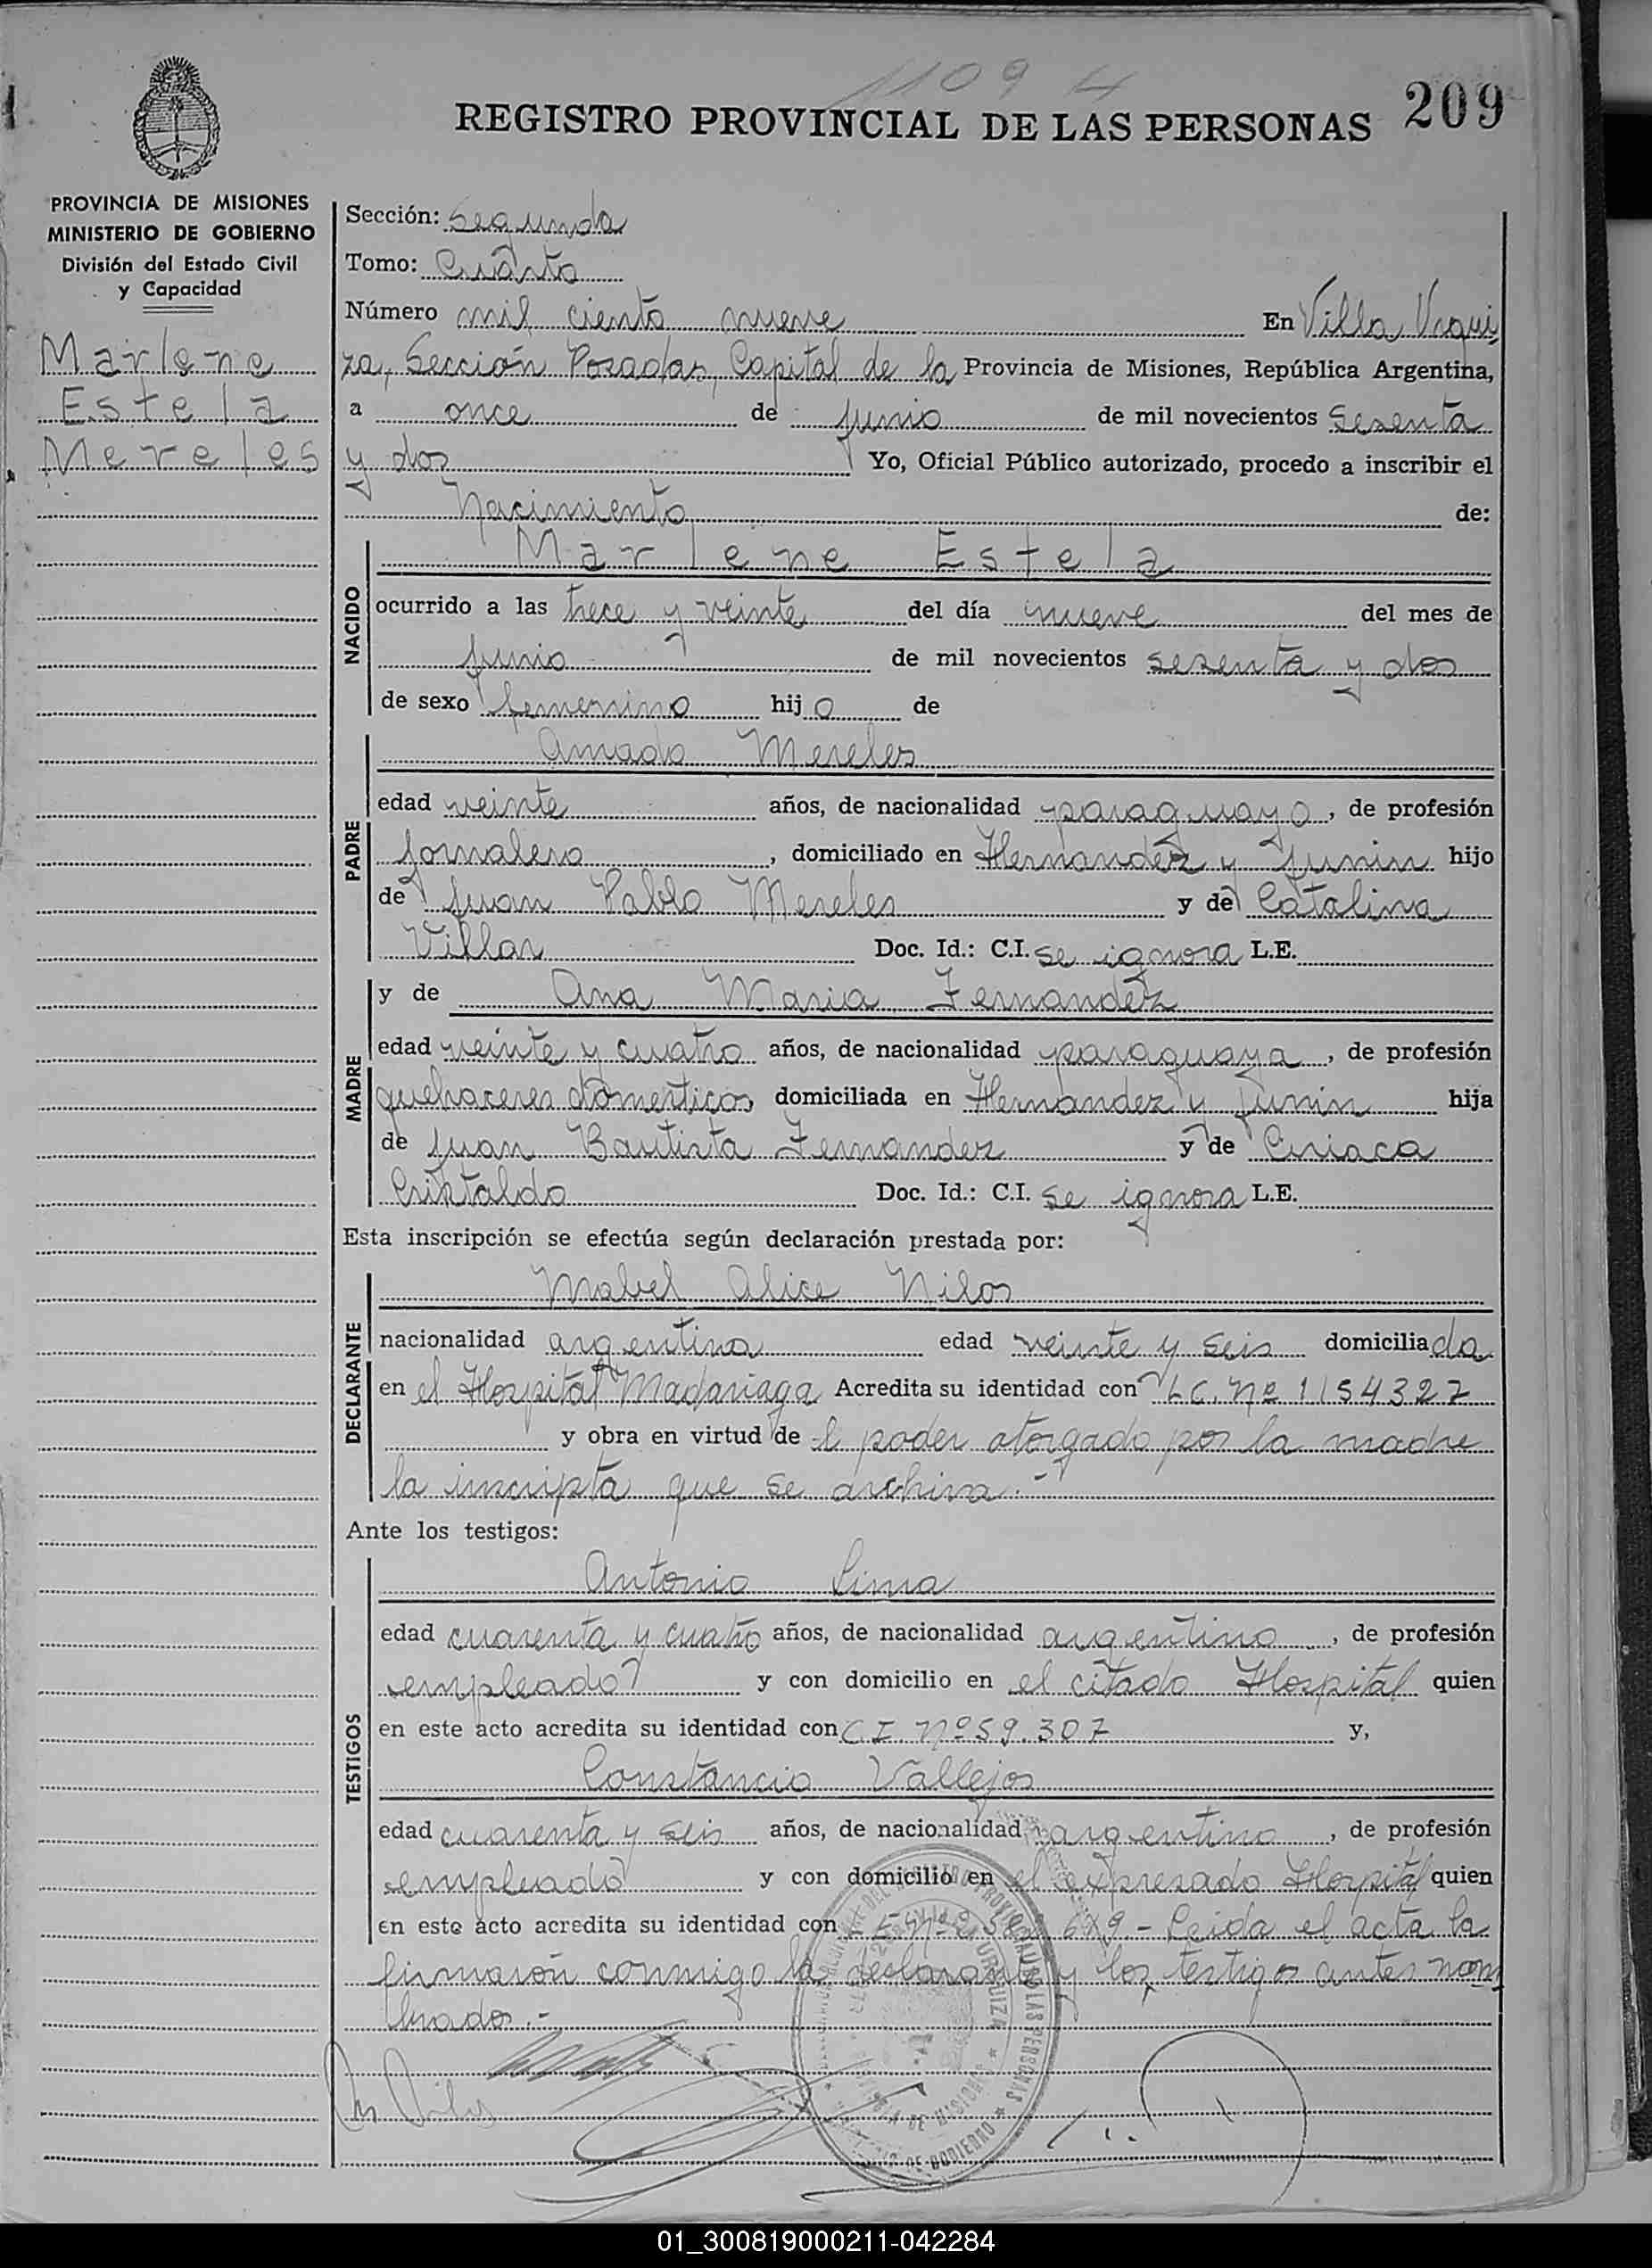 1109 4
REGISTRO PROVINCIAL DE LAS PERSONAS 209
PROVINCIA DE MISIONES
MINISTERIO DE GOBIERNO
División del Estado Civil
y Capacidad
Marlene
Estela
Mereles
Sección: Segunda
Tomo: Cuarto
Número mil ciento nueve En Villa Urqui
za, Sección Posadas, Capital de la Provincia de Misiones, República Argentina,
a once de junio de mil novecientos sesenta
y dos Yo, Oficial Público autorizado, procedo a inscribir el
Nacimiento de:
NACIDO
Marlene Estela
ocurrido a las trece y veinte del día nueve del mes de
junio de mil novecientos sesenta y dos
de sexo femenino hij o de
PADRE
Amado Mereles
edad veinte años, de nacionalidad paraguayo, de profesión
jornalero, domiciliado en Hernandez y Junin hijo
de Juan Pablo Mereles y de Catalina
Villar Doc. Id.: C.I. se ignora L.E.
MADRE
y de Ana Maria Fernandez
edad veinte y cuatro años, de nacionalidad paraguaya, de profesión
quehaceres domesticos, domiciliada en Hernandez y Junin hija
de Juan Bautista Fernandez y de Ciriaca
Cristaldo Doc. Id.: C.I. se ignora L.E.
Esta inscripción se efectúa según declaración prestada por:
DECLARANTE
Mabel Alice Nilos
nacionalidad argentina edad veinte y seis domiciliada
en el Hospital Madariaga Acredita su identidad con L.C. Nº 1154327
y obra en virtud de el poder otorgado por la madre
la inscripta que se archiva.-
Ante los testigos:
TESTIGOS
Antonio Lima
edad cuarenta y cuatro años, de nacionalidad argentino, de profesión
empleado y con domicilio en el citado Hospital quien
en este acto acredita su identidad con C.I. Nº 59.307 y,
Constancio Vallejos
edad cuarenta y seis años, de nacionalidad argentino, de profesión
empleado y con domicilio en el expresado Hospital quien
en este acto acredita su identidad con - Leida el acta la
firmaron conmigo la declarante y los testigos antes nom
brados.-
01_300819000211-042284